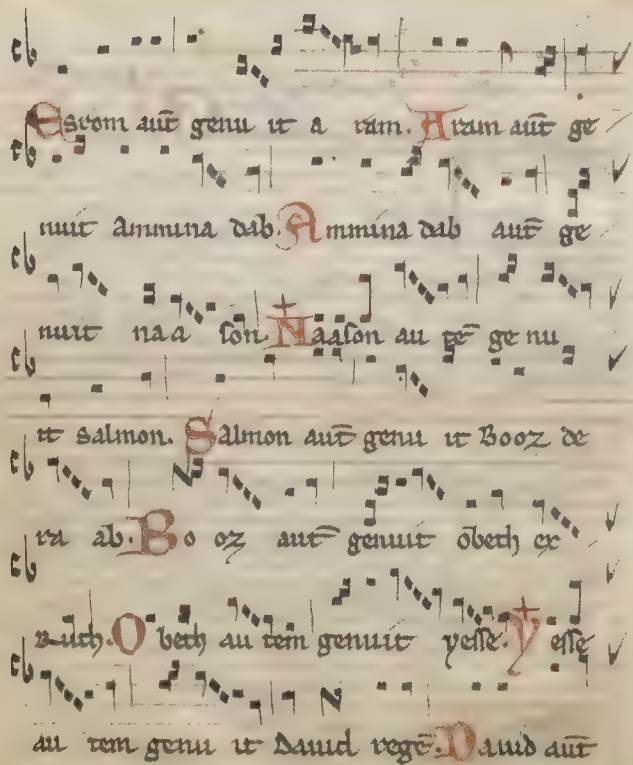 Esrom aut̄ genu it a ram. Aram aut̄ ge
nuit Ammina dab. Ammina dab aut̄ ge
nuit naa son. Naason au tē ge nu
it Salmon. Salmon aut̄ genu it Booz de
ra ab. Bo oz aut̄ genuit obeth ex
Ruth. O beth au tem genuit yesse. Y esse
au tem genu it Dauid regē. Dauid aut̄